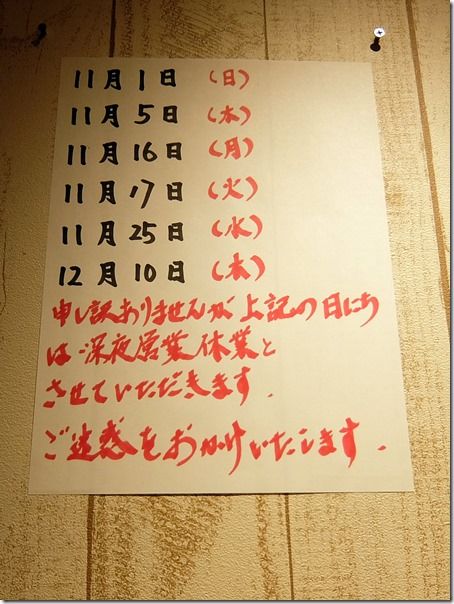 11月1日 (日)
11月5日 (木)
11月16日 (月)
11月17日 (火)
11月25日 (水)
12月10日 (木)
申し訳ありませんが上記の日にあ
は深夜営業休業と
させていただきます.
ご迷惑をおかけいたします.